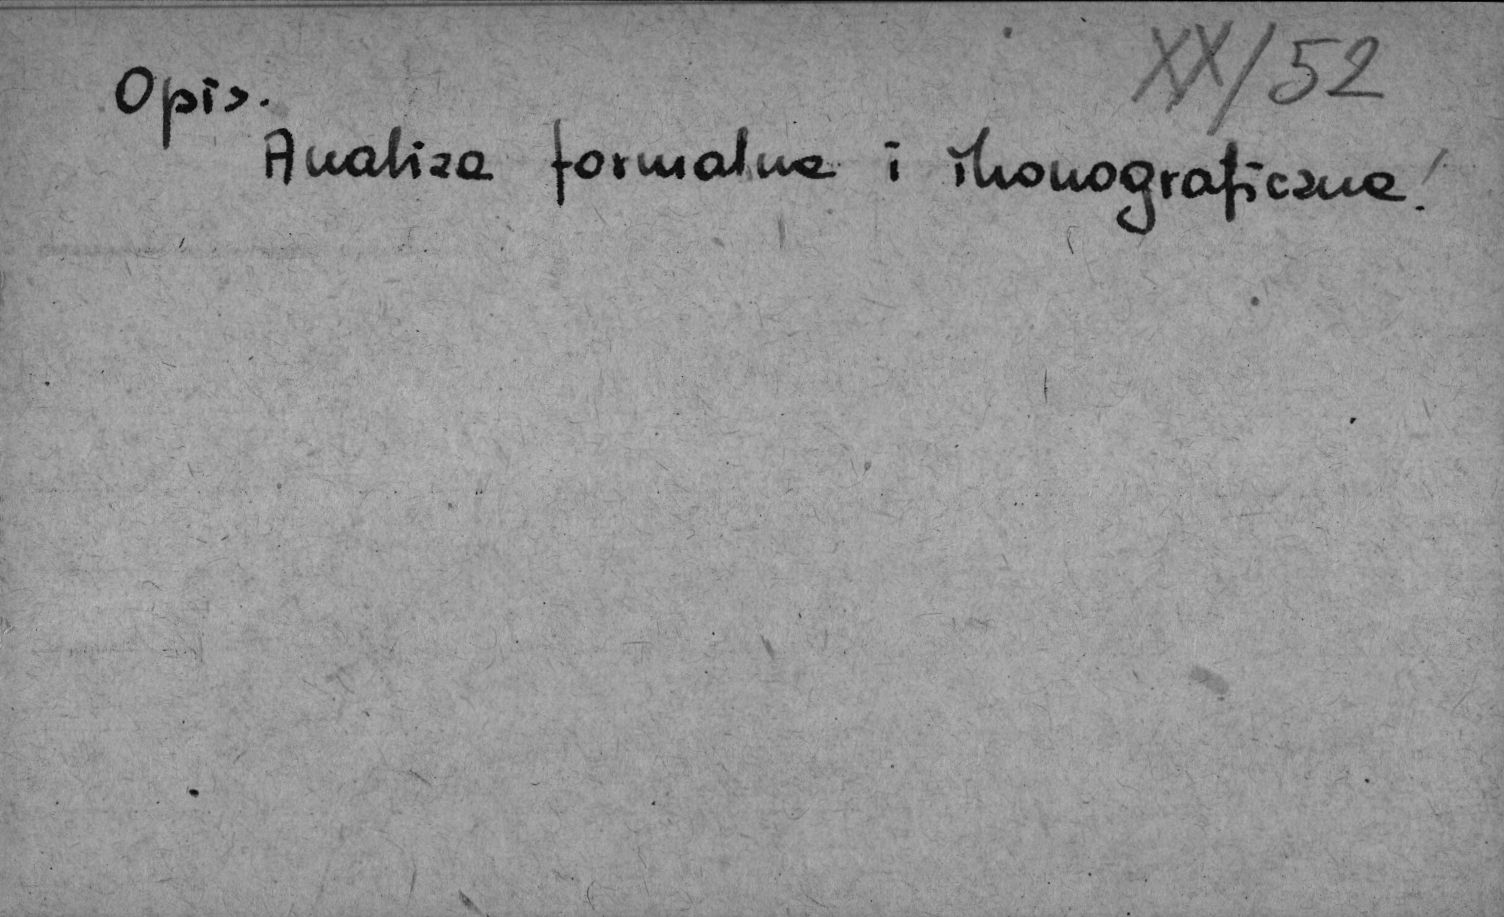 XX/52
Opis.
Analiza formalna i ikonograficzna.